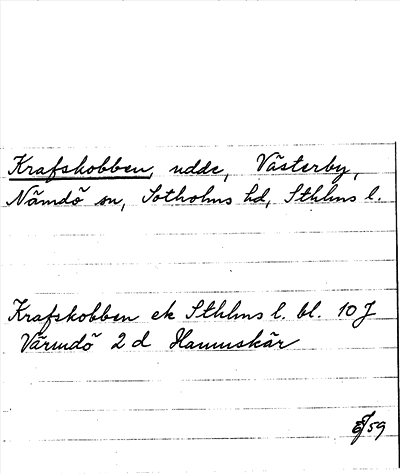 Krafskobben, udde, Västerby,
Nämdö sn, Sotholms hd, Sthlms l.
Krafskobben ek Sthlms l. bl. 10 J
Värmdö 2 d Hamnskär
59